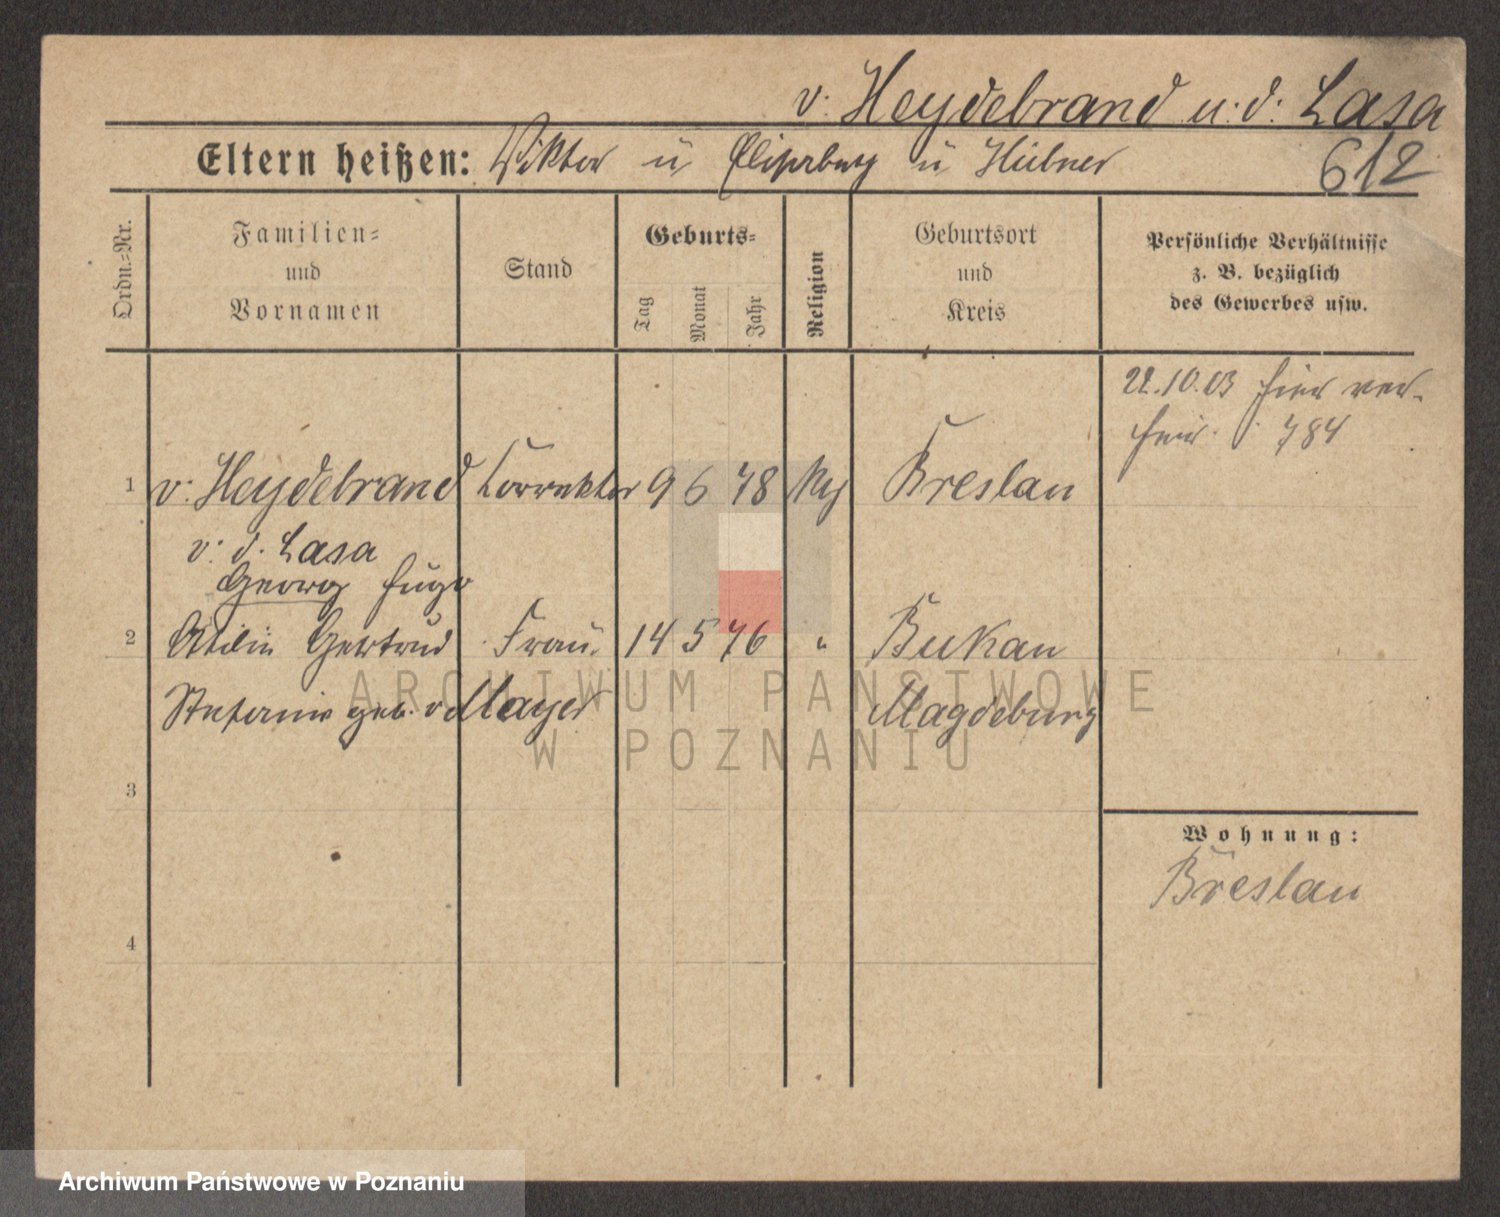 v. Heydebrand u. d. Lasa
Eltern heißen: Viktor u Elisabeth u Hübner
612
Ordn.-Nr.
Familien- und Vornamen
Stand
Geburts-
Tag
Monat
Jahr
Religion
Geburtsort und Kreis
Persönliche Verhältnisse
z. B. bezüglich
des Gewerbes usw.
22.10.03 hier ver-
heir. 784
1 v. Heydebrand 9 6 78 Breslau
v. d. Lasa
Georg Hugo
2 Gertrud Frau 14 5 76 " Bukau
Stefanie geb. v Mayer Magdeburg
3
4
Wohnung:
Breslau
ARCHIWUM PAŃSTWOWE
W POZNANIU
Archiwum Państwowe w Poznaniu